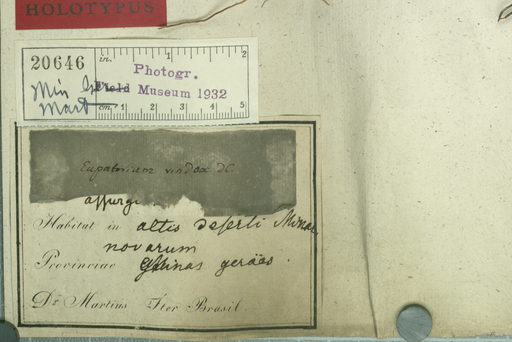 HOLOTYPUS
20646
in. 1 2
Photogr.
Min Ger
Field Museum 1932
Mart
cm. 1 2 3 4 5
Eupatorium vindex DC
assurg
Habitat in altis deserti Minar
novarum
Provinciae Minas geräes.
Dr Martius Iter Brasil